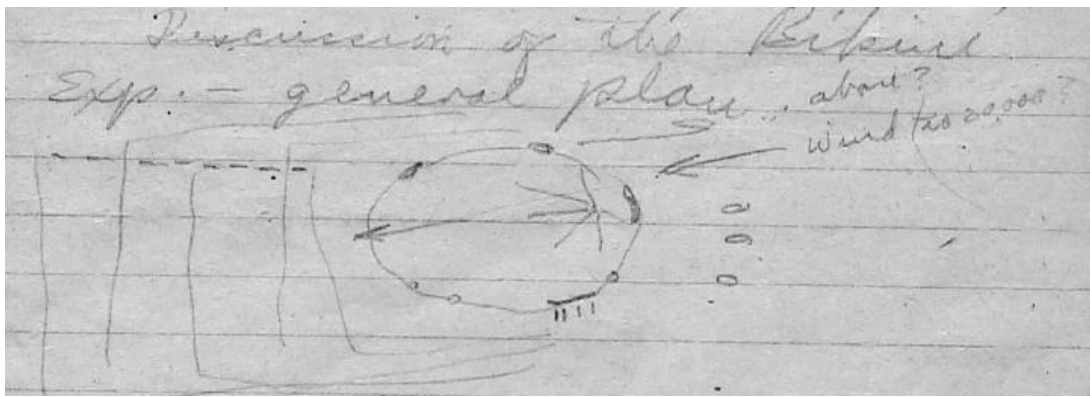 Discussion of the Bikini
Exp. – general plan. above?
Wind to 20,000?